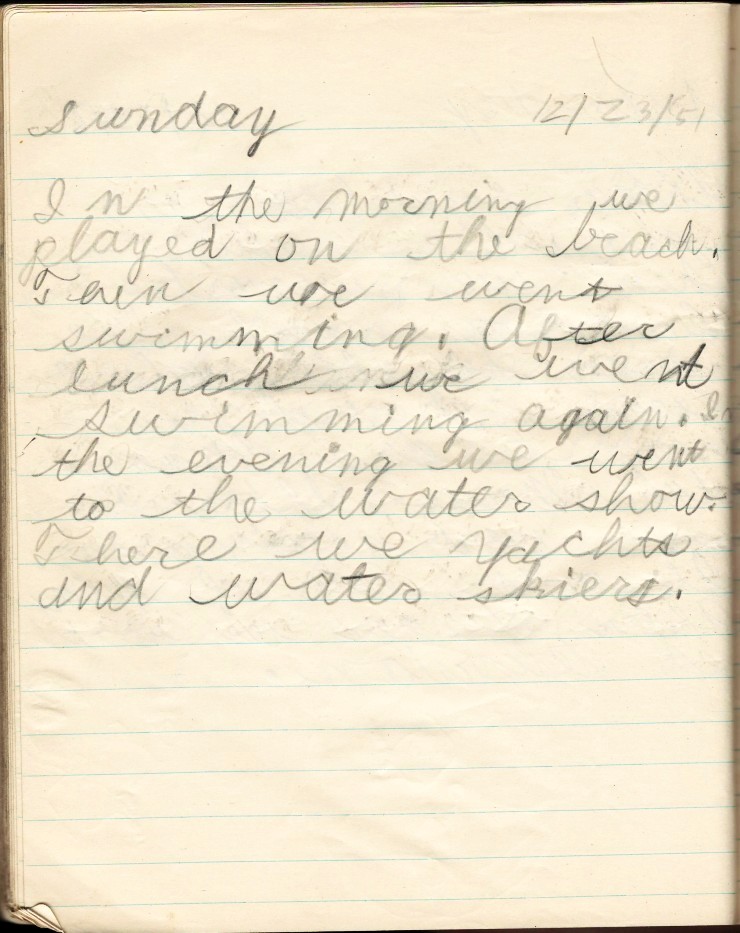 Sunday 12/23/51
In the morning we
played on the beach.
Tain we went
swimming. After
lunch we went
swimming again. In
the evening we went
to the water show.
There we yachts
and water skiers.